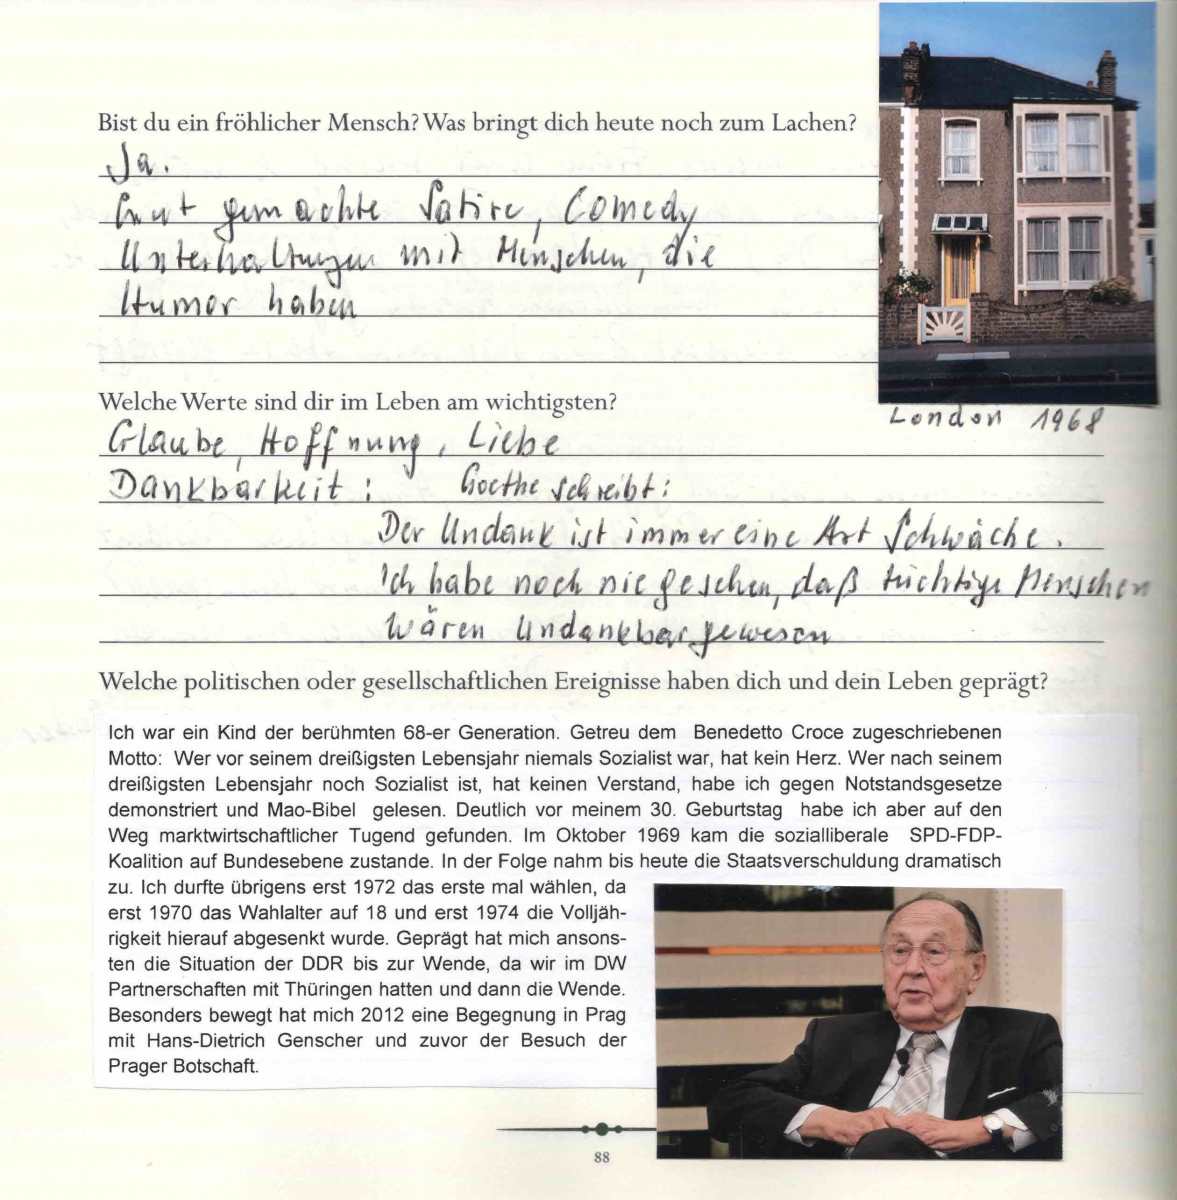 Bist du ein fröhlicher Mensch? Was bringt dich heute noch zum Lachen?
Ja.
Gut gemachte Satire, Comedy
Unterhaltungen mit Menschen, die
Humor haben
London 1968
Welche Werte sind dir im Leben am wichtigsten?
Glaube, Hoffnung, Liebe
Dankbarkeit: Goethe schreibt:
Der Undank ist immer eine Art Schwäche.
Ich habe noch nie gesehen, daß tüchtige Menschen
wären undankbar gewesen
Welche politischen oder gesellschaftlichen Ereignisse haben dich und dein Leben geprägt?
Ich war ein Kind der berühmten 68-er Generation. Getreu dem Benedetto Croce zugeschriebenen
Motto: Wer vor seinem dreißigsten Lebensjahr niemals Sozialist war, hat kein Herz. Wer nach seinem
dreißigsten Lebensjahr noch Sozialist ist, hat keinen Verstand, habe ich gegen Notstandsgesetze
demonstriert und Mao-Bibel gelesen. Deutlich vor meinem 30. Geburtstag habe ich aber auf den
Weg marktwirtschaftlicher Tugend gefunden. Im Oktober 1969 kam die sozialliberale SPD-FDP-
Koalition auf Bundesebene zustande. In der Folge nahm bis heute die Staatsverschuldung dramatisch
zu. Ich durfte übrigens erst 1972 das erste mal wählen, da
erst 1970 das Wahlalter auf 18 und erst 1974 die Volljäh-
rigkeit hierauf abgesenkt wurde. Geprägt hat mich ansons-
ten die Situation der DDR bis zur Wende, da wir im DW
Partnerschaften mit Thüringen hatten und dann die Wende.
Besonders bewegt hat mich 2012 eine Begegnung in Prag
mit Hans-Dietrich Genscher und zuvor der Besuch der
Prager Botschaft.
88